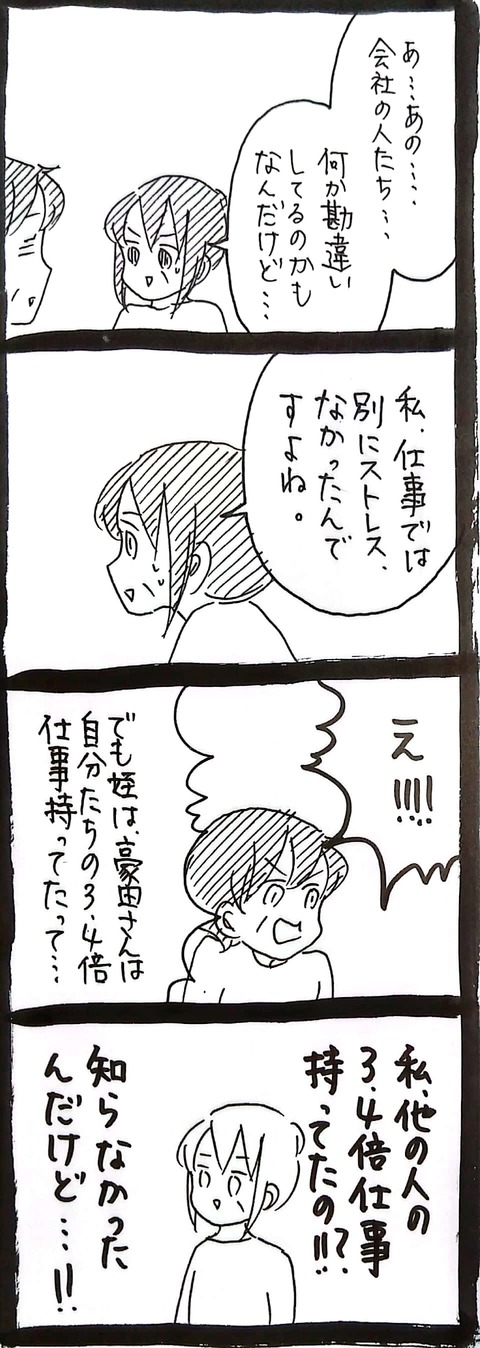 あ…あの…
会社の人たち…
何か勘違い
してるのかも
なんだけど…
私、仕事では
別にストレス、
なかったんで
すよね。
え!!!!
でも姪は、豪田さんは
自分たちの3、4倍
仕事持ってたって…
私、他の人の
3、4倍仕事
持ってたの!!?
知らなかった
んだけど…!!